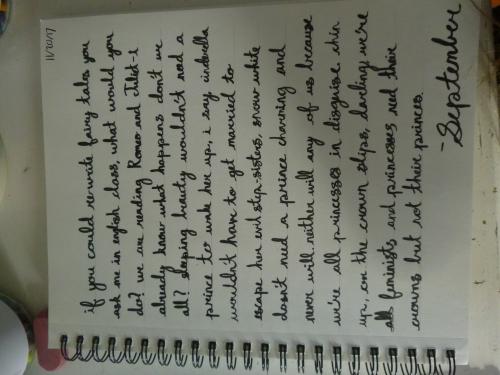 11/20/17
if you could re-write fairy tales you
ask me in english class, what would you
do? we are reading Romeo and Juliet-i
already know what happens don't we
all? sleeping beauty wouldn't need a
prince to wake her up, i say, cinderella
wouldn't have to get married to
escape her evil step-sisters, snow white
doesn't need a prince charming and
never will neither will any of us because
we're all princesses in disguise chin
up, or the crown slips, darling we're
all feminists and princesses need their
crowns but not their princes.
-September